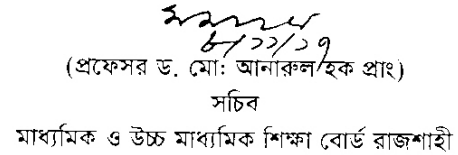 ৮/১১/১৭
(প্রফেসর ড. মো: আনারুল হক প্রাং)
সচিব
মাধ্যমিক ও উচ্চ মাধ্যমিক শিক্ষা বোর্ড রাজশাহী